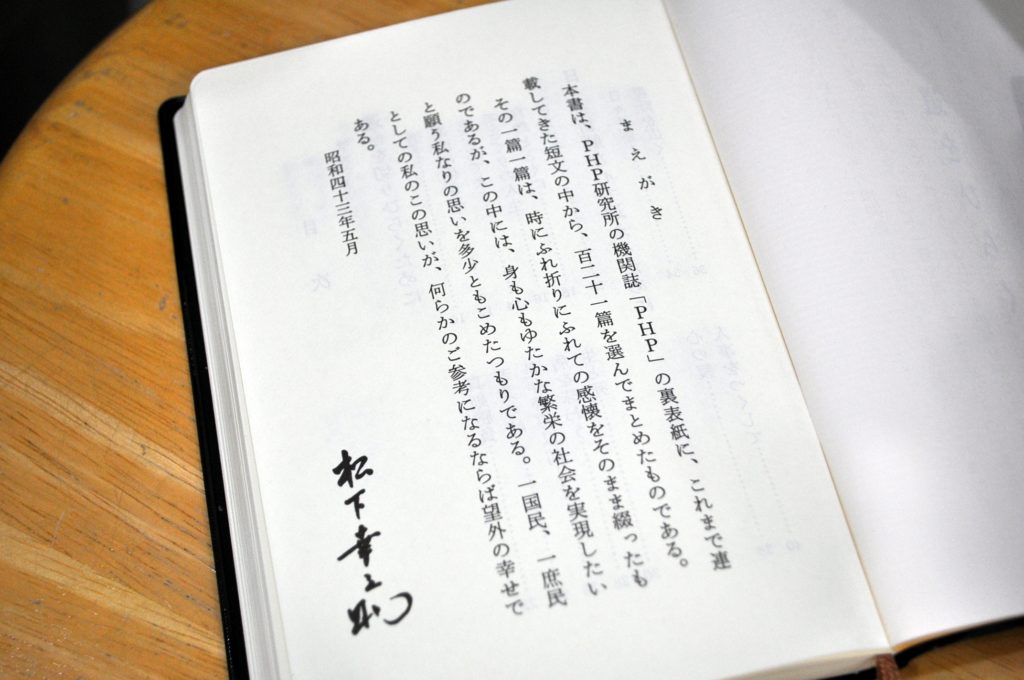 まえがき
本書は、PHP研究所の機関誌「PHP」の裏表紙に、これまで連
載してきた短文の中から、百二十一篇を選んでまとめたものである。
その一篇一篇は、時にふれ折りにふれての感懐をそのまま綴ったも
のであるが、この中には、身も心もゆたかな繁栄の社会を実現したい
と願う私なりの思いを多少ともこめたつもりである。一国民、一庶民
としての私のこの思いが、何らかのご参考になるならば望外の幸せで
ある。
昭和四十三年五月
松下幸之助